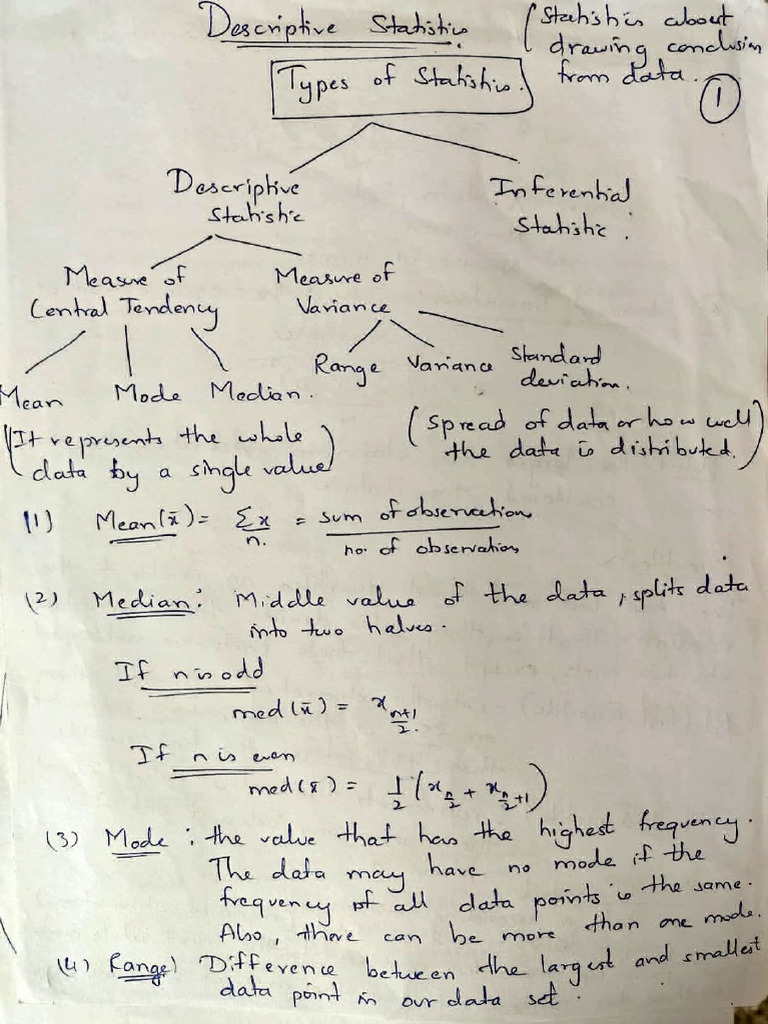 Descriptive Statistics.
(Statistics about
drawing conclusion
from data.
Types of Statistics.
1
Descriptive
Statistic
Inferential
Statistic.
Measure of
Central Tendency
Measure of
Variance
Mean Mode Median.
Range Variance Standard
deviation.
(It represents the whole
data by a single value)
(Spread of data or how well
the data is distributed.)
(1) Mean(x̄) = Σx/n. = sum of observation/no. of observation
(2) Median: Middle value of the data, splits data
into two halves.
If n is odd
med(x̄) = x_{n+1/2}.
If n is even
med(x̄) = 1/2 (x_{n/2} + x_{n/2+1})
(3) Mode: the value that has the highest frequency.
The data may have no mode if the
frequency of all data points is the same.
Also, there can be more than one mode.
(4) Range) Difference between the largest and smallest
data point in our data set.